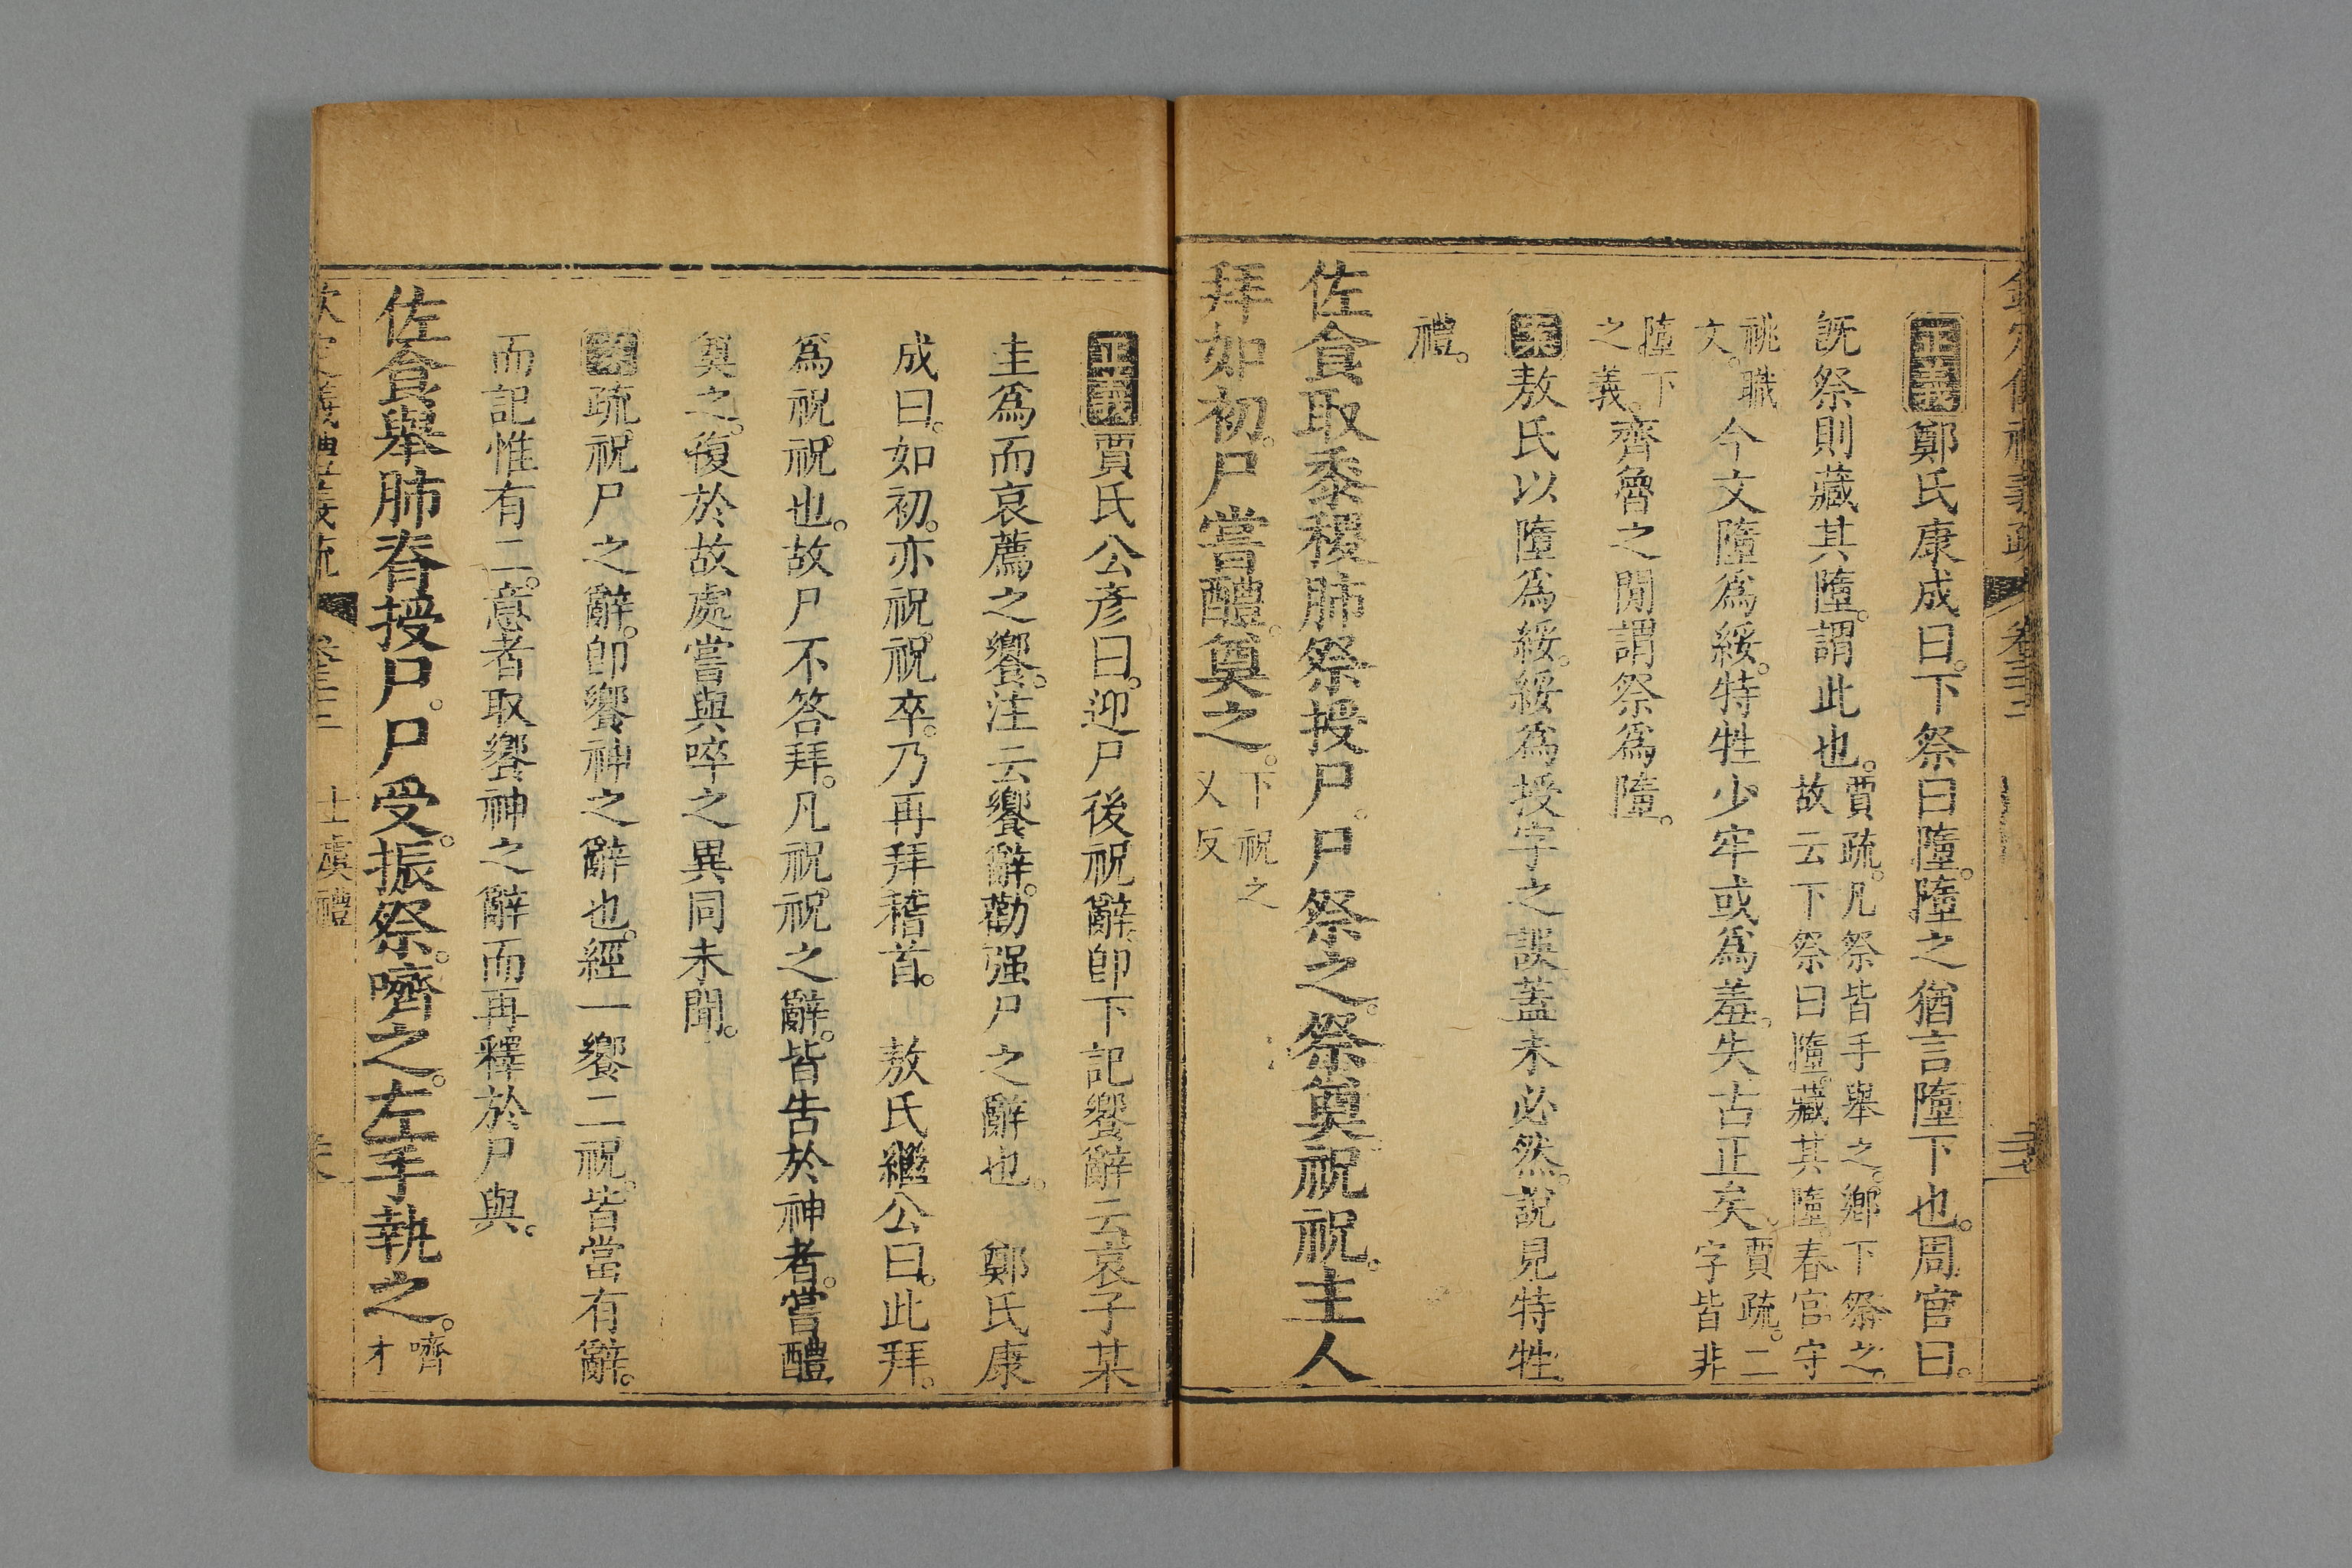 正義鄭氏康成曰。下祭曰墮。墮之猶言墮下也。周官曰。
既祭則藏其墮。謂此也。賈疏。凡祭皆手舉之。鄉下祭之。故云下祭曰墮。藏其墮。春官守
祧職文。今文墮爲綏。特牲少牢或爲羞。失古正矣。賈疏。二字皆非
墮下之義。齊魯之閒謂祭爲墮。
案敖氏以墮爲綏。綏爲授字之誤。蓋未必然。說見特牲
禮。
佐食取黍稷肺祭授尸。尸祭之。祭奠祝祝。主人
拜如初。尸嘗醴。奠之。下祝之又反
正義賈氏公彥曰。迎尸後祝辭。卽下記饗辭云哀子某
圭爲而哀薦之饗。注云饗辭。勸强尸之辭也。 鄭氏康
成曰。如初。亦祝。祝卒。乃再拜稽首。 敖氏繼公曰。此拜。
爲祝祝也。故尸不答拜。凡祝祝之辭。皆告於神者。嘗醴
奠之。復於故處。嘗與啐之異同未聞。
疏祝尸之辭。卽饗神之辭也。經一饗二祝。皆當有辭。
而記惟有二。意者取饗神之辭而再釋於尸與。
佐食舉肺脊授尸。尸受。振祭。嚌之。左手執之。嚌才
士虞禮